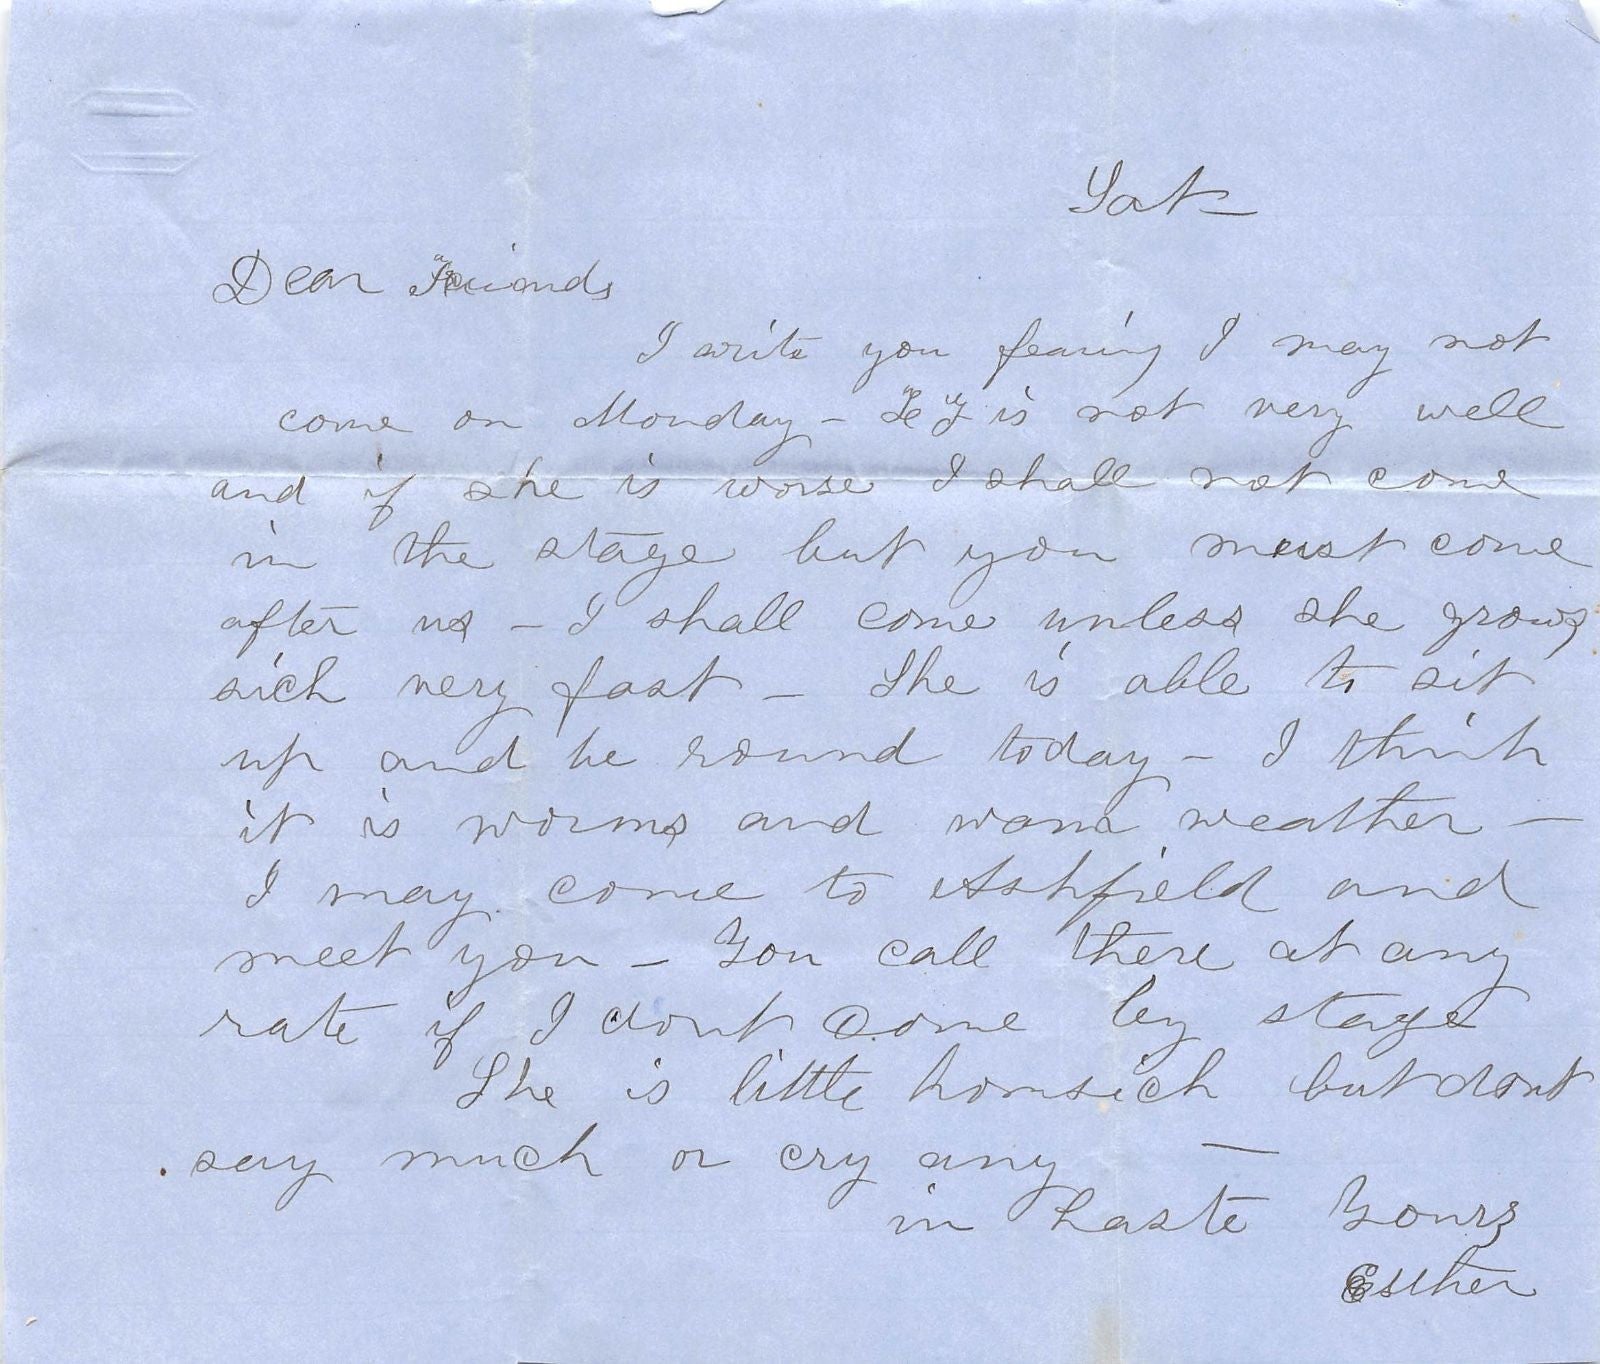 Sat
Dear Friends
I write you fearing I may not
come on Monday – is not very well
and if she is worse I shall not come
in the stage but you must come
after us – I shall come unless she grows
sick very fast – She is able to sit
up and be round today – I think
it is worms and warm weather –
I may come to Ashfield and
meet you – You call there at any
rate if I dont come by stage
She is little homsick but dont
say much or cry any –
in haste Yours
Esther